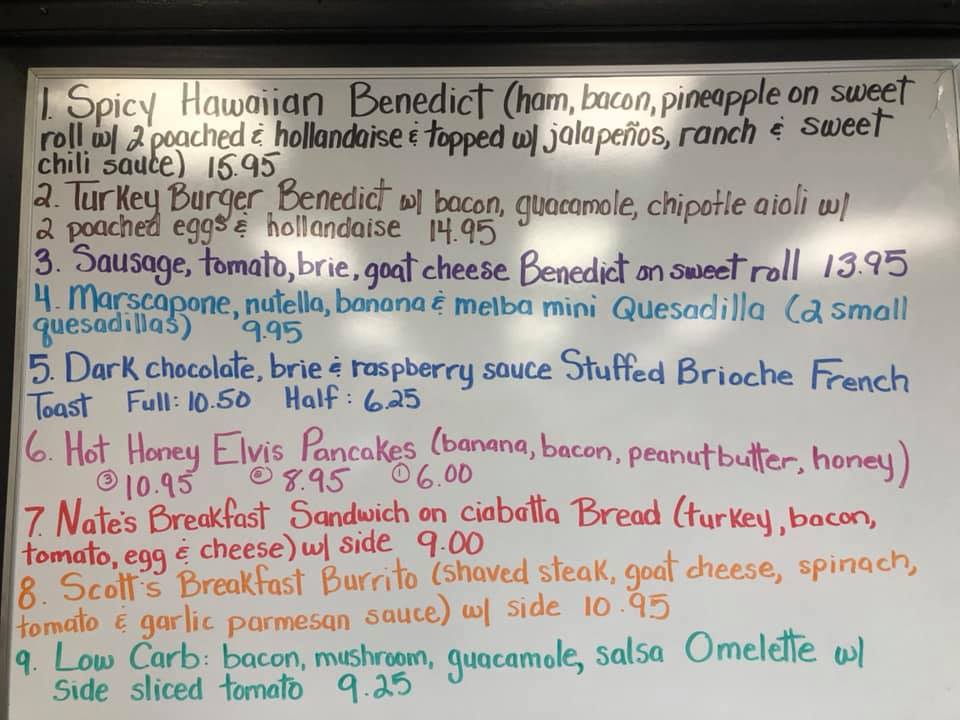 1. Spicy Hawaiian Benedict (ham, bacon, pineapple on sweet
roll w/ 2 poached & hollandaise & topped w/ jalapeños, ranch & sweet
chili sauce) 15.95
2. Turkey Burger Benedict w/ bacon, guacamole, chipotle aioli w/
2 poached eggs & hollandaise 14.95
3. Sausage, tomato, brie, goat cheese Benedict on sweet roll 13.95
4. Marscapone, nutella, banana & melba mini Quesadilla (2 small
quesadillas) 9.95
5. Dark chocolate, brie & raspberry sauce Stuffed Brioche French
Toast Full: 10.50 Half: 6.25
6. Hot Honey Elvis Pancakes (banana, bacon, peanut butter, honey)
③ 10.95 ② 8.95 ① 6.00
7. Nate's Breakfast Sandwich on ciabatta Bread (turkey, bacon,
tomato, egg & cheese) w/ side 9.00
8. Scott's Breakfast Burrito (shaved steak, goat cheese, spinach,
tomato & garlic parmesan sauce) w/ side 10.95
9. Low Carb: bacon, mushroom, guacamole, salsa Omelette w/
side sliced tomato 9.25